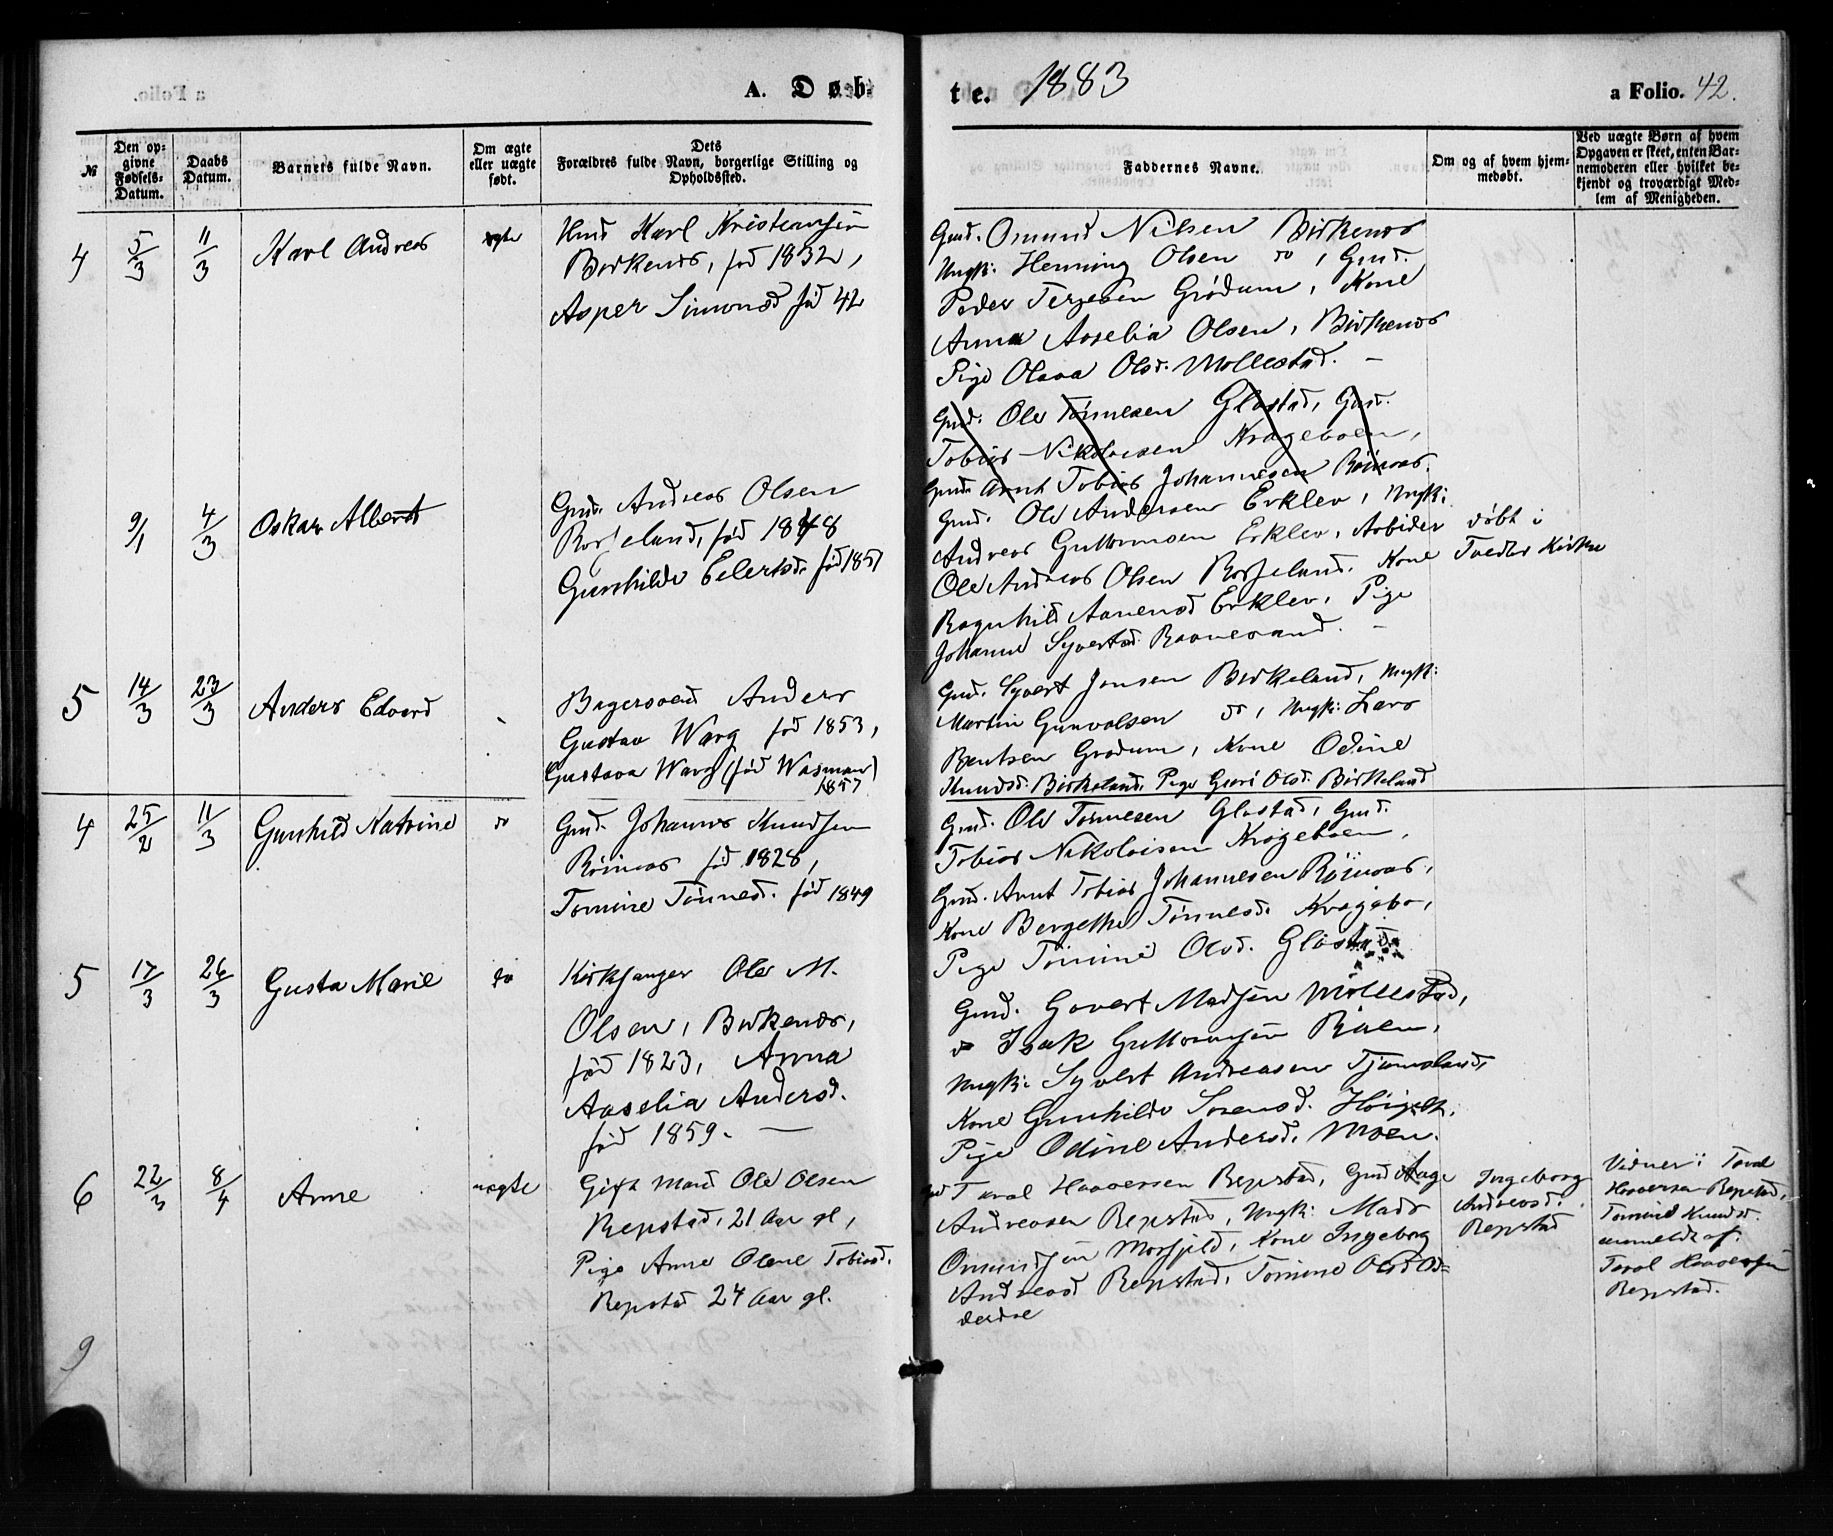 A. Døb-
te. 1883
a Folio. 42.
№
Den op-
givne
Fødsels-
Datum.
Daabs
Datum.
Barnets fulde Navn.
Om ægte
eller uægte
født.
Dets
Forældres fulde Navn, borgerlige Stilling og
Opholdssted.
Faddernes Navne.
Om og af hvem hjem-
medøbt.
Ved uægte Børn af hvem
Opgaven er skeet, enten Bar-
nemoderen eller hvilket be-
kjendt og troværdigt Med-
lem af Menigheden.
4 5/3 11/3 Karl Andreas ægte
Hmd Karl Kristensen
Birkenes, fød 1832,
Asper Simonsd fød 42
Gmd. Omund Nilsen Birkenes
Ungk: Henning Olsen do, Gmd.
Peder Terjesen Grødum, Kone
Anna Aaselia Olsen, Birkenes
Pige Olava Olsd. Mollestad. –
Gmd. Ole Tønnesen Gløstad, Gmd.
Tobias Nikolaisen Krageboen,
Gmd. Arnt Tobias Johannesen Röinaas.
9/1 4/3 Oskar Albert
Gmd. Andreas Olsen
fød 1848
Gunhilde Eilertsd. fød 1851
Gmd. Ole Andersen Erklev, Ungk:
Andreas Guttormsen Erklev, Arbeider
Ole Andreas Olsen Kone
Ragnhild Aanensd Erklev, Pige
Johanne Syvertsd. –
døbt i
Tvedts Kirke
5 14/3 23/3 Anders Edvard
Bagersvend Anders
Gustav Warg fød 1853,
Gustava Warg (fød Wasman)
1857
Gmd. Syvert Jensen Birkeland, Ungk:
Martin Gunvalsen do, Ungk: Lars
Bentsen Grødum, Kone Odine
Knudsd. Birkeland, Pige Guri Olsd. Birkeland
4 25/2 11/3 Gunhild Katrine do
Gmd. Johannes Knudsen
Röinaas fød 1828,
Tomine Tönnesd. fød 1849
Gmd. Ole Tønnesen Gløstad, Gmd.
Tobias Nikolaisen Krageboen,
Gmd. Arnt Tobias Johannesen Röinaas,
Kone Bergethe Tønnesd. Kragebo,
Pige Tomine Olsd. Gløstad.
5 17/3 26/3 Gusta Marie do
Kirksanger Ole M.
Olsen, Birkenes,
fød 1823, Anna
Aaselia Andersd.
fød 1859. —
Gmd. Govert Madsen Mollestad,
do Isak Guttormsen Röien,
Ungk: Syvert Andreasen Tjomsland,
Kone Gunhilde Sorensd.
Pige Odine Andersd. Moen.
6 22/3 8/4 Anne uægte
Gift Mand Ole Olsen
Repstad, 21 Aar gl,
Pige Anne Olene Tobiasd.
Repstad 24 Aar gl.
Gmd Taral Haaversen Repstad, Gmd Aage
Andreasen Repstad, Ungk: Mads
Omundsen Mosfjeld, Kone Ingeborg
Andreasd Repstad, Tomine Olsd Od=
derdal
Ingeborg
Andreasd.
Repstad
Vidner: Taral
Haaversen Repstad,
Tomine Knudsd.
anmeldt af:
Taral Haaversen
Repstad.
9